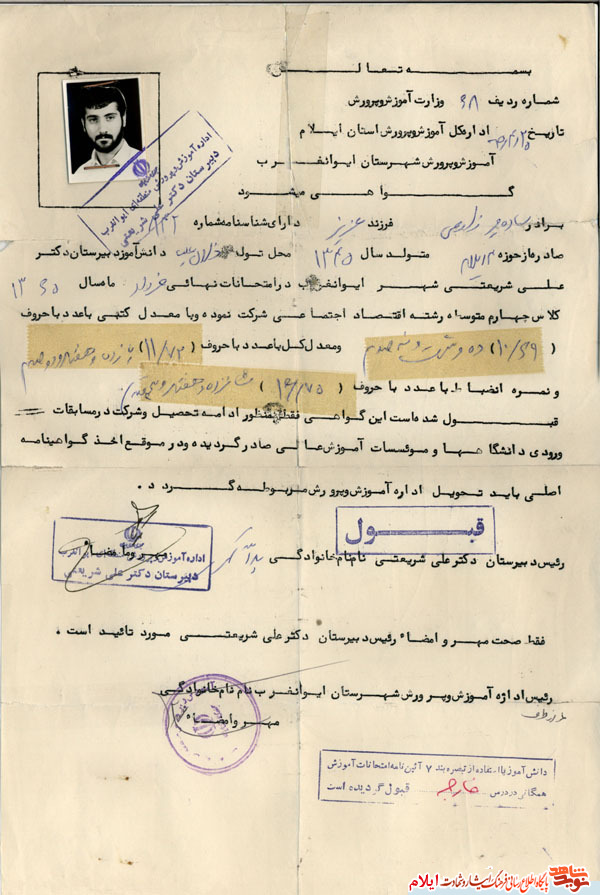 بسمه تعالی
شماره ردیف ۶۸ وزارت آموزش و پرورش
تاریخ اداره کل آموزش و پرورش استان ایلام
آموزش و پرورش شهرستان ایوانغرب
گواهی میشود
برادر فرزند عزیز دارای شناسنامه شماره
صادره از حوزه ایلام متولد سال ۱۳۴۵ محل تولد دانش آموز دبیرستان دکتر
علی شریعتی شهر ایوانغرب در امتحانات نهائی خرداد ماه سال ۱۳۶۵
کلاس چهارم متوسطه رشته اقتصاد اجتماعی شرکت نموده و با معدل کتبی با عدد با حروف
(۱۰/۶۹) ده و شصت و نه صدم و معدل کل با عدد با حروف (۱۱/۷۲) یازده و هفتاد و دو صدم
و نمره انضباط با عدد با حروف (۱۶/۷۵) شانزده و هفتاد و پنج صدم
قبول شده است این گواهی فقط بمنظور ادامه تحصیل و شرکت در مسابقات
ورودی دانشگاهها و موئسسات آموزش عالی صادر گردیده و در موقع اخذ گواهینامه
اصلی باید تحویل اداره آموزش و پرورش مربوطه گردد.
قبول
رئیس دبیرستان دکتر علی شریعتی نام نام خانوادگی مهر و امضاء
اداره آموزش و پرورش منطقه‌ای ایوانغرب
دبیرستان دکتر علی شریعتی
فقط صحت مهر و امضاء رئیس دبیرستان دکتر علی شریعتی مورد تائید است.
رئیس اداره آموزش و پرورش شهرستان ایوانغرب نام نام خانوادگی
مهر و امضاء
دانش آموز با استفاده از تبصره بند ۷ آئین نامه امتحانات آموزش
همگانی در درس خارجه قبول گردیده است
نوید شاهد پایگاه اطلاع رسانی فرهنگ ایثار و شهادت ایلام